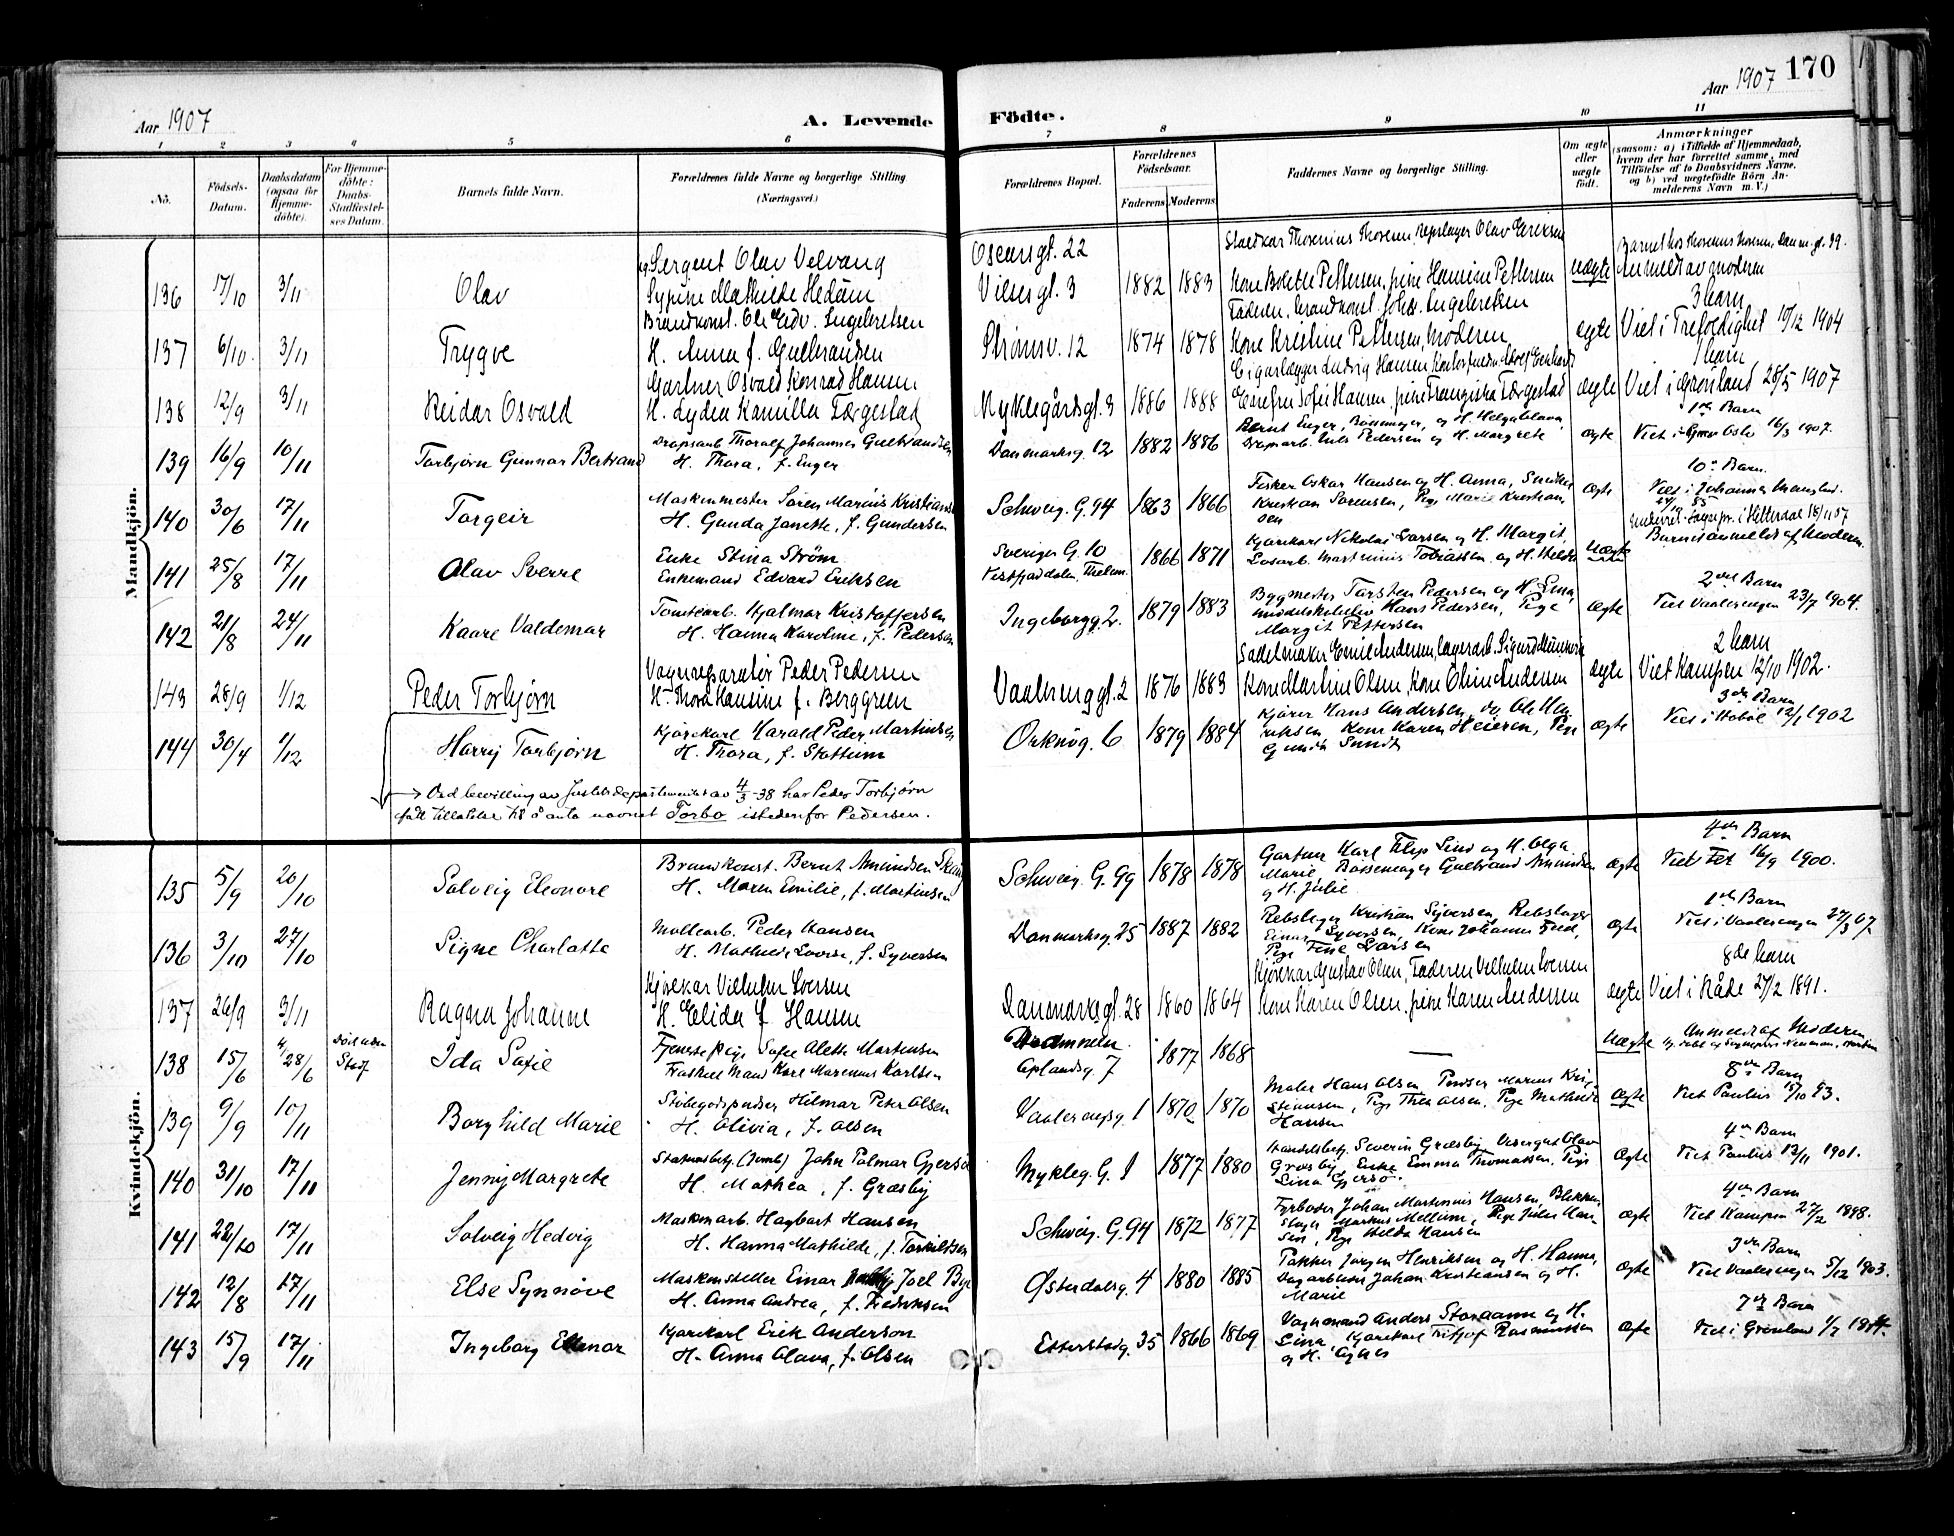 Aar 1907
A. Levende
Födte.
Aar 1907
170
1 2 3 4 5 6 7 8 9 10 11
Nö.
Födsels-Datum.
Daabsdatum (ogsaa for Hjemme-döbte).
For Hjemme-döbte: Daabs-Stadfæstel-ses Datum.
Barnets fulde Navn.
Forældrenes fulde Navne og borgerlige Stilling (Næringsvei)
Forældrenes Bopæl.
Forældrenes Födselsaar.
Faderens
Moderens
Faddernes Navne og borgerlige Stilling.
Om ægte eller uægte födt.
Anmærkninger
(saasom: a) i Tilfælde af Hjemmedaab, hvem der har forrettet samme, med Tilföielse af to Daabsvidners Navne, og b) ved uægtefödte Börn An-melderens Navn m. V.)
Mandkjön.
136 17/10 3/11 Olav
Sergent Olav Velvang
Sypine Mathilde Hedâm
Oscarsgt. 22
Vibesgt. 3
1882 1883
Thorenius Thoresen, Repslager Olav Eriksen
Kone Bolette Pettersen, pine Hansine Pettersen
uægte
Anmeldt av moderen
137 6/10 3/11 Trygve
Brandkonst. Ole Edv. Ingebretsen
H. Anna f. Gulbrandsen
Strömsv. 12
1874 1878
Faderen, brandkonst. Johs. Ingebretsen
Kone Kristine Pettersen, Moderen
ægte
3 barn
Viet i Trefoldighet 10/12 1904
138 12/9 3/11 Reidar Osvald
Gartner Osvald Konrad Hansen
H. Lydia Kamilla Færgestad
Myklegårdsgt. 3
1886 1888
Cigarlægger Ludvig Hansen
Sofie Hansen, pine Franziska Færgestad
ægte
1 barn
Viet i Grønland 28/5 1907
139 16/9 10/11 Torbjørn Gunnar Bertrand
Dropsarb. Thoralf Johannes Gulbrandsen
H. Thora, f. Enger
Danmarksg. 12
1882 1886
Bernt Enger, Bøssemager, og H. Helga
Dropsarb. Nils Pedersen og H. Margrete
ægte
1ste Barn
Viet i Oslo 16/3 1907.
140 30/6 17/11 Torgeir
Maskinmester Søren Marius Kristiansen
H. Gunda Janette, f. Gundersen
Schweig. G. 94
1863 1866
Fisker Oskar Hansen og H. Anna, Snedker
Kristian Sørensen, Pige Marie Kristian
sen
ægte
10de Barn.
Viet i Johannes
141 25/8 17/11 Olav Sverre
Enke Stina Strøm
Enkemand Edvard Eriksen
Sveriges G. 10
Vestfjorddalen, Thelem.
1866 1871
Kjørekarl Nikolai Larsen og H. Margit,
Losarb. Martinius Tobiassen og H. Hilda
uægte
Hitterdal 18/11 07
Barnet anmeldt af Moderen.
142 21/8 24/11 Kaare Valdemar
Tomtearb. Hjalmar Kristoffersen
H. Hanna Karoline, f. Pedersen
Ingeborgg. 2.
1879 1883
Bygmester Torsten Pedersen og H. Lina,
Hans Pedersen, Pige
Margit Pettersen
ægte
2det Barn
Viet Vaalerengen 23/7 1904.
143 28/9 1/12 Peder Torbjørn
Vognreparatør Peder Pedersen
H. Thora Hansine f. Berggren
Vaalerenggt. 2
1876 1883
Sadelmaker Emil Andersen, lagerarb. Sigurd
Kone Martine Olsen, Kone Oline Andersen
ægte
2 barn
Viet Kampen 12/10 1902.
144 30/4 1/12 Harry Torbjørn
Kjørekarl Harald Peder Martinsen
H. Thora, f. Stottum
Orknög. 6
1879 1884
Kjører Hans Andersen, do Ole Hen
riksen, Kone Karen Heieren, Pige
Gunda Sundt
ægte
3die Barn
Viet i Hobøl 12/1 1902
Ved bevilling av Justitsdepartementet av 4/3-38 har Peder Torbjørn
fått tillatelse til å anta navnet Torbo istedenfor Pedersen.
Kvindekjön.
135 5/9 20/10 Solveig Eleonore
Brandkonst. Bernt Amundsen
H. Maren Emilie, f. Martinsen
Schweig. G. 99
1878 1878
Gartner Karl Filip Lind og H. Olga
Marie, Bøssemager Gulbrand Amundsen
og H. Julie
ægte
4de Barn
Viet Fet 16/9 1900.
136 3/10 27/10 Signe Charlotte
Møllearb. Peder Hansen
H. Mathilde Lovise, f. Syversen
Danmarksg. 25
1887 1882
Rebslager Kristian Syversen, Rebslager
Einar Syversen, Kone Johanne
Pige Larsen
ægte
1ste Barn
Viet i Vaalerengen 27/3 07
137 26/9 3/11 Ragna Johanne
Kjørekar Vilhelm Iversen
H. Elida f. Hansen
Danmarksgt. 28
1860 1864
Kjørekar Gustav Olsen, Faderen Vilhelm Iversen
Kone Karen Olsen, pine Karen Andersen
ægte
8de barn
Viet i Råde 27/2 1891.
138 15/6 28/6 Død uden Stadf. Ida Sofie
Tjenestepige Sofie Alette Mortensen
Fraskilt Mand Karl Marenus Karlsen
Oplandsg. 7
1877 1868
—
uægte
Anmeldt af Moderen
139 9/9 10/11 Borghild Marie
Støbegodspudser Hilmar Peter Olsen
H. Olivia, f. Olsen
Vaalerengsg. 1
1870 1870
Maler Hans Olsen, Pudser Marius Kri-
stiansen, Pige Thea Olsen, Pige Mathilde
Hansen
ægte
8de Barn
Viet Paulus 15/10 93.
140 31/10 17/11 Jenny Margrete
Stationsbetj. (Jernb) John Palmar Gjersø
H. Mathea, f. Græsby
Mykleg. G. 1
1877 1880
Handelsbetj. Severin Græsby, Visergut Olav
Græsby, Enke Emma Thomassen, Pige
Lina Gjersø.
ægte
4de Barn
Viet Paulus 13/11 1901.
141 22/10 17/11 Solveig Hedvig
Maskinarb. Hagbart Hansen
H. Hanna Mathilde, f. Torkildsen
Schweig. G. 94
1872 1877
Fyrbøder Johan Martinius Hansen, Blikken
slager Markus Mellum, Pige Julie Han
sen, Pige Hilda Hansen
ægte
4de Barn
Viet Kampen 27/2 1898.
142 12/8 17/11 Else Synnøve
Maskinsteller Einar Joel Bye
H. Anna Andrea, f. Fredriksen
Østerdalsg. 4
1880 1885
Pakker Jørgen Henriksen og H. Hanna,
Dagarbeider Johan Kristiansen og H.
Marie
ægte
3die Barn
Viet Vaalerengen 5/12 1903.
143 15/9 17/11 Ingeborg Ellenor
Kjørekarl Erik Anderson
H. Anna Olava, f. Olsen
Etterstadg. 35
1866 1869
Vognmand Anders Storaann og H.
Lina, Kjørekarl Fritjof Rasmussen
og H. Agnes
ægte
7de Barn
Viet i Grønland